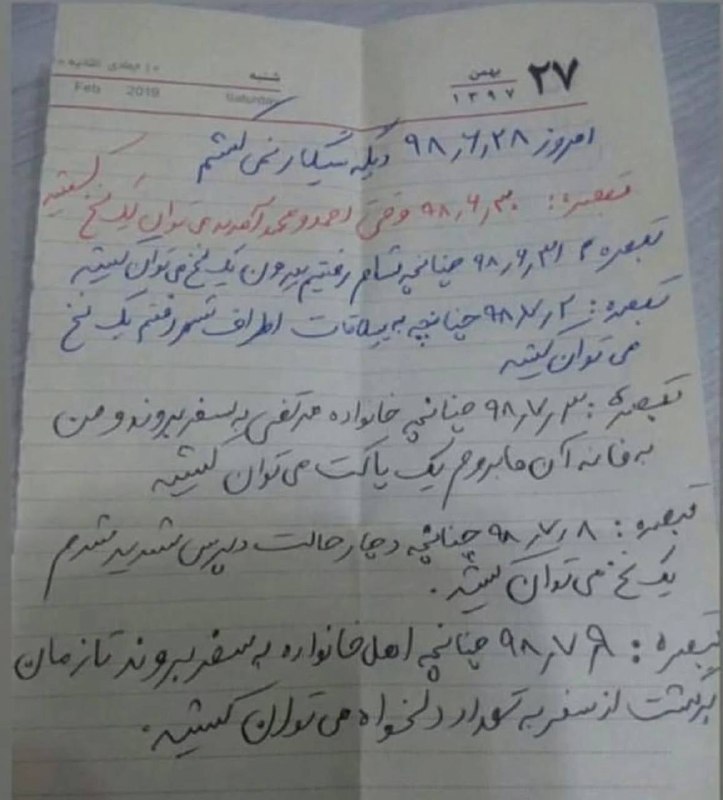 ۲۷ بهمن ۱۳۹۷
شنبه
Saturday
۱۰ جمادی الثانیه
Feb 2019
امروز ۹۸٫۶٫۲۸ دیگه سیگار نمی کشم
تبصره: ۹۸٫۶٫۳۰ وقتی احمد و محمد آمدند می توان یک نخ کشید
تبصره ۲ ۹۸٫۶٫۳۱ چنانچه شام رفتیم بیرون یک نخ می توان کشید
تبصره: ۹۸٫۷٫۲ چنانچه به ییلاقات اطراف شهر رفتم یک نخ
می توان کشید
تبصره: ۹۸٫۷٫۳ چنانچه خانواده مرتضی به سفر بروند و من
به خانه آن ها بروم یک پاکت می توان کشید
تبصره: ۹۸٫۷٫۸ چنانچه دچار حالت دپرس شدید شدم
یک نخ می توان کشید.
تبصره: ۹۸٫۷٫۹ چنانچه اهل خانواده به سفر بروند تا زمان
برگشت از سفر به تعداد دلخواه می توان کشید.